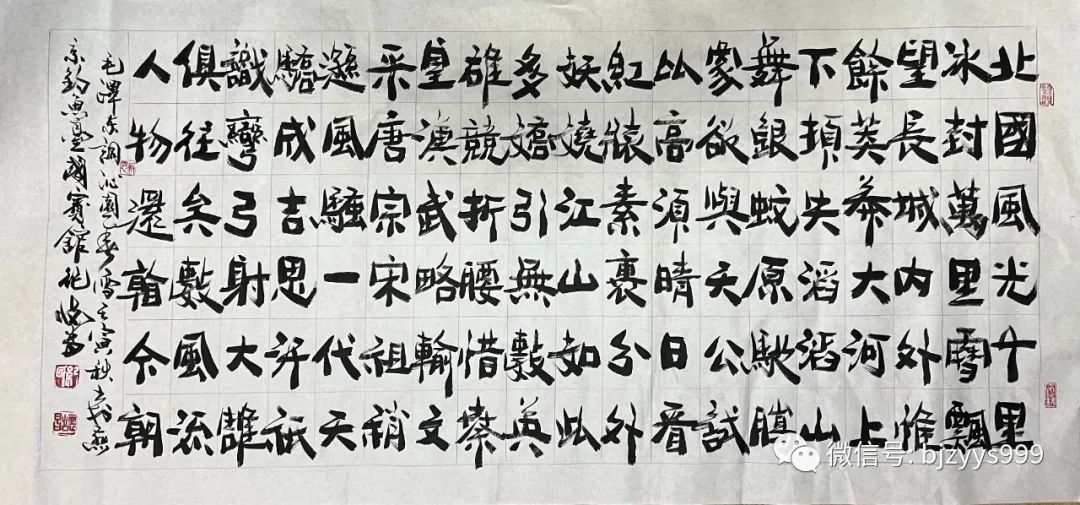 北國風光千里
冰封萬里雪飄
望長城内外惟
餘莽莽大河上
下頓失滔滔山
舞銀蛇原馳臘
象欲與天公試
比高須晴日看
紅裝素裹分外
妖嬈江山如此
多嬌引無數英
雄競折腰惜秦
皇漢武略輸文
采唐宗宋祖稍
遜風騷一代天
驕成吉思汗祇
識彎弓射大雕
俱往矣數風流
人物還看今朝
毛澤東詞沁園春雪壬寅秋於燕
京釣魚臺國賓館
微信号: bjzyys999